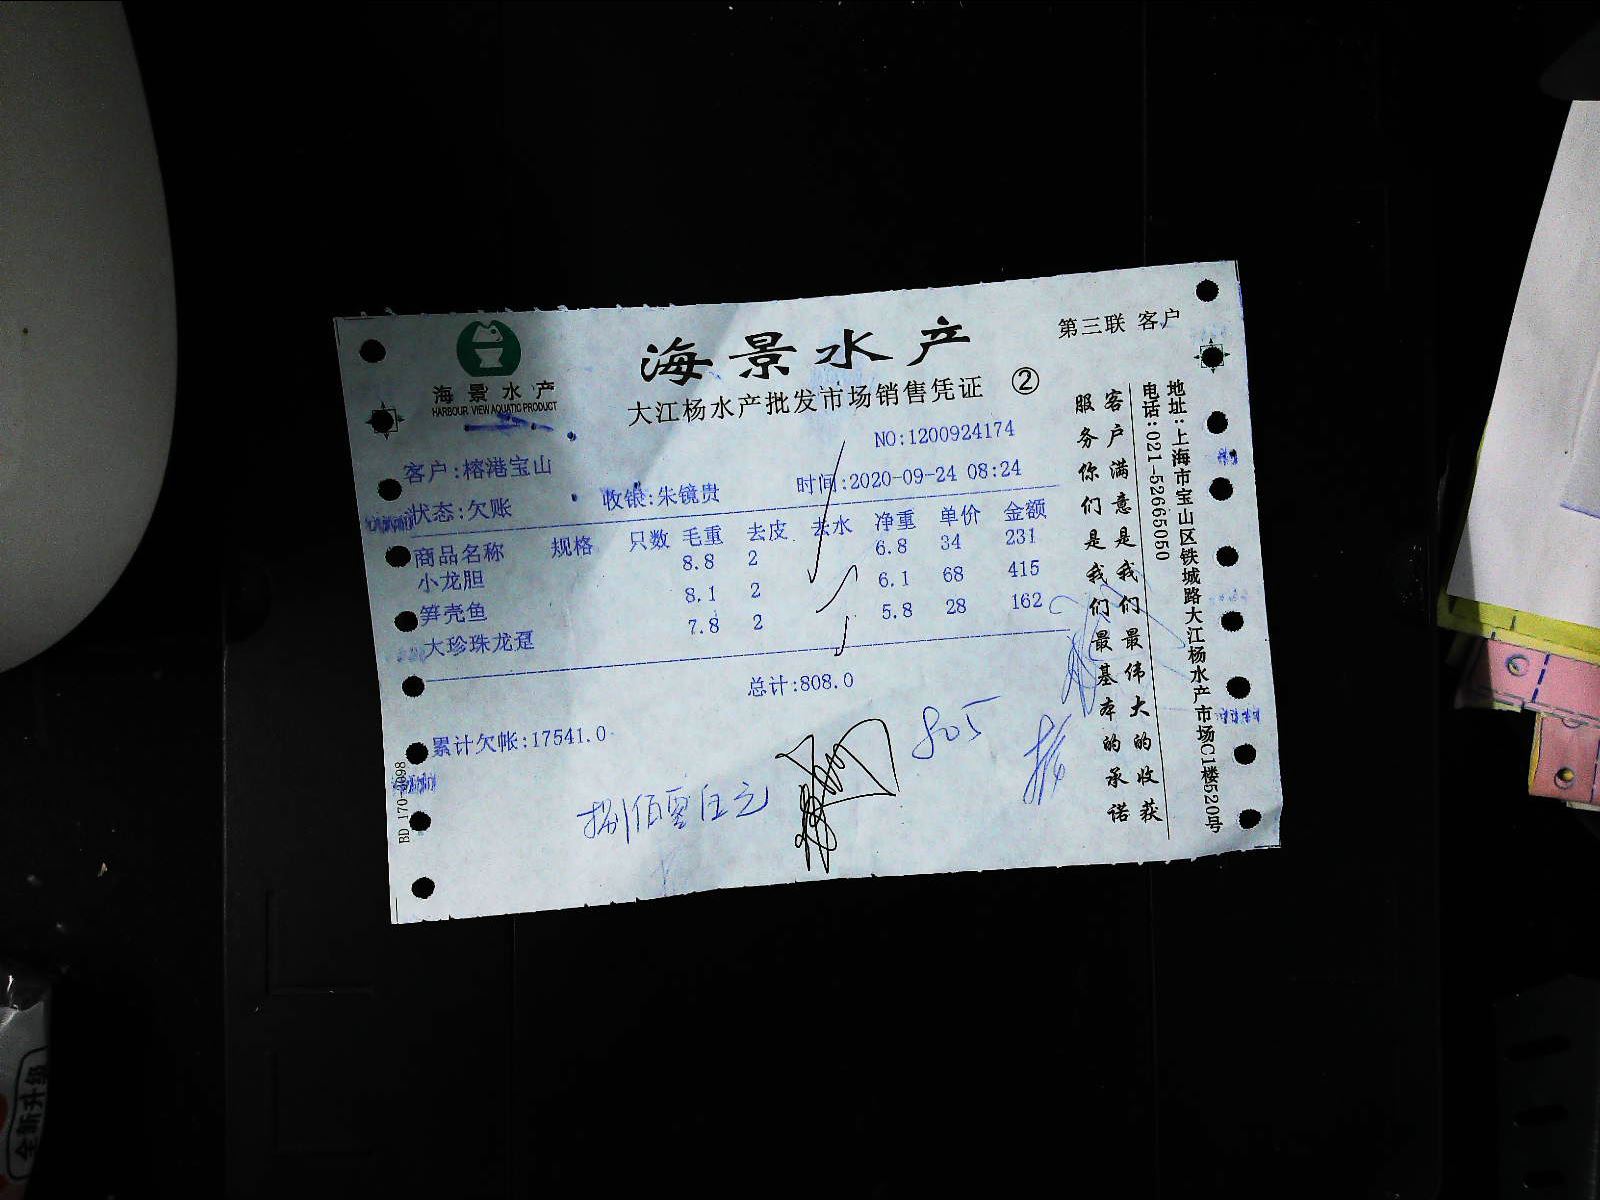 海景水产
HARBOUR VIEW AQUATIC PRODUCT
海景水产
第三联 客户
大江杨水产批发市场销售凭证 ②
NO:1200924174
客户:榕港宝山
状态:欠账 收银:朱镜贵 时间:2020-09-24 08:24
商品名称 规格 只数 毛重 去皮 去水 净重 单价 金额
小龙胆 8.8 2 6.8 34 231
笋壳鱼 8.1 2 6.1 68 415
大珍珠龙趸 7.8 2 5.8 28 162
总计:808.0
累计欠帐:17541.0
805
捌佰零伍元
客户满意是我们最伟大的收获
服务你们是我们最基本的承诺
地址:上海市宝山区铁城路大江杨水产市场C1楼520号
电话:021-52665050
全新升级